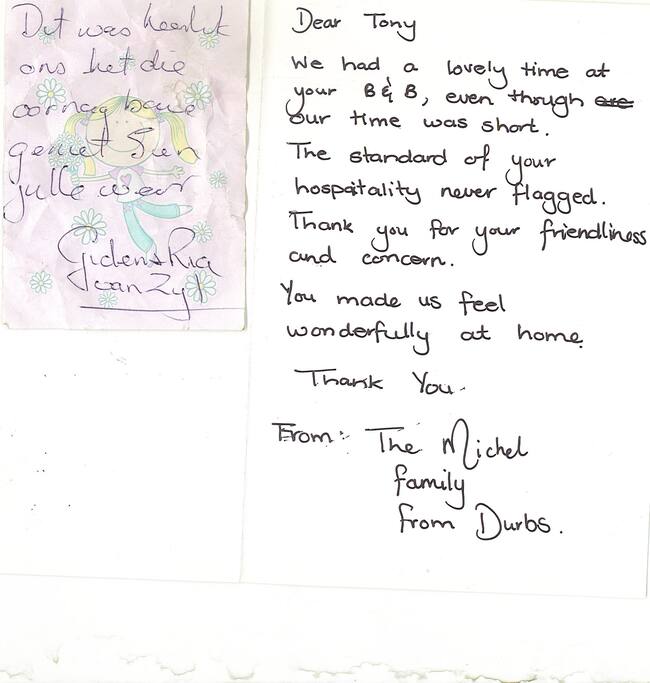 Dit was heerlik
ons het die
oornag baie
geniet Sien
julle weer
Gideon & Ria
van Zyl
Dear Tony
We had a lovely time at
your B & B, even though are
our time was short.
The standard of your
hospitality never flagged.
Thank you for your friendliness
and concern.
You made us feel
wonderfully at home.
Thank You.
From: The Michel
family
from Durbs.